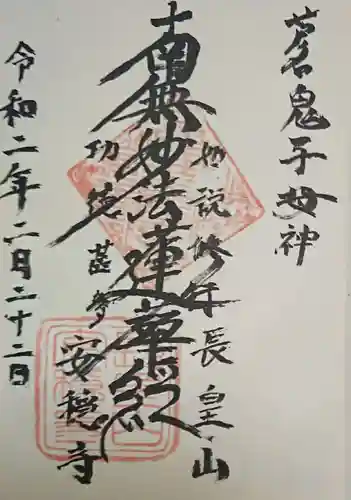 茗鬼子母神
如説修行 長皇山
南無妙法蓮華経
功徳甚多 安穏寺
令和二年二月二十二日